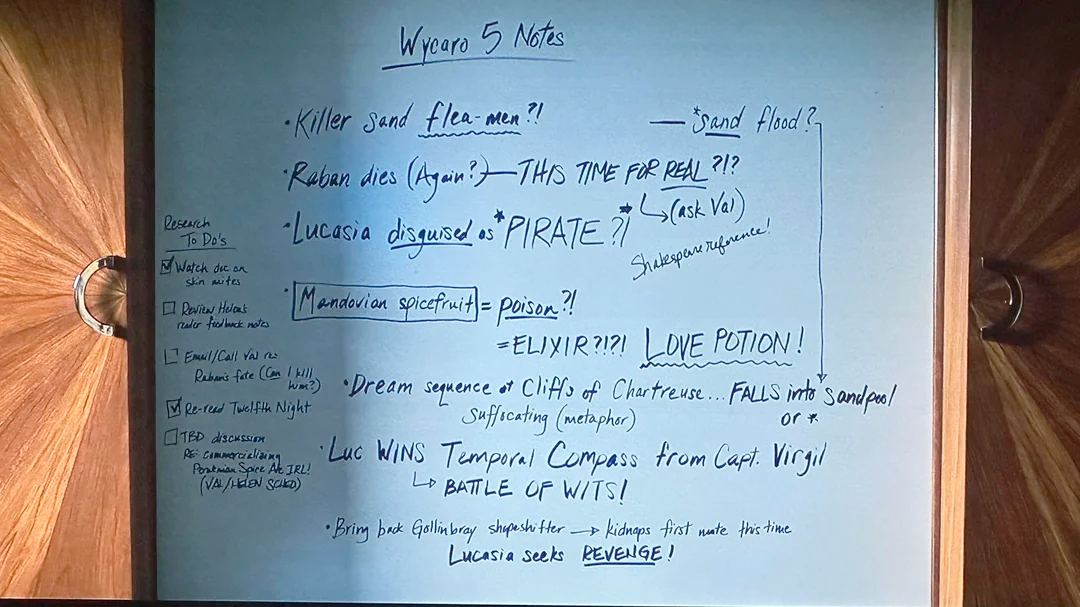 Wycaro 5 Notes
• Killer Sand flea-men?!
— *sand flood?
• Raban dies (Again?) — THIS TIME FOR REAL?!?
(ask Val)
• Lucasia disguised as *PIRATE?!*
Shakespeare reference!
• Mandovian spicefruit = poison?!
= ELIXIR?!?! LOVE POTION!
• Dream sequence at Cliffs of Chartreuse... FALLS into Sandpool
Suffocating (metaphor)
or *
• Luc WINS Temporal Compass from Capt. Virgil
↳ BATTLE OF WITS!
• Bring back Gollinbray shapeshifter → kidnaps first mate this time
Lucasia seeks REVENGE!
Research
To Do's
Watch doc on
skin mites
Review Helen's
reader feedback notes
Email/Call Val re:
Raban's fate (Can I kill
him?)
Re-read Twelfth Night
TBD discussion
RE: commercializing
Spice Ale IRL!
(VAL/HELEN SCHED)